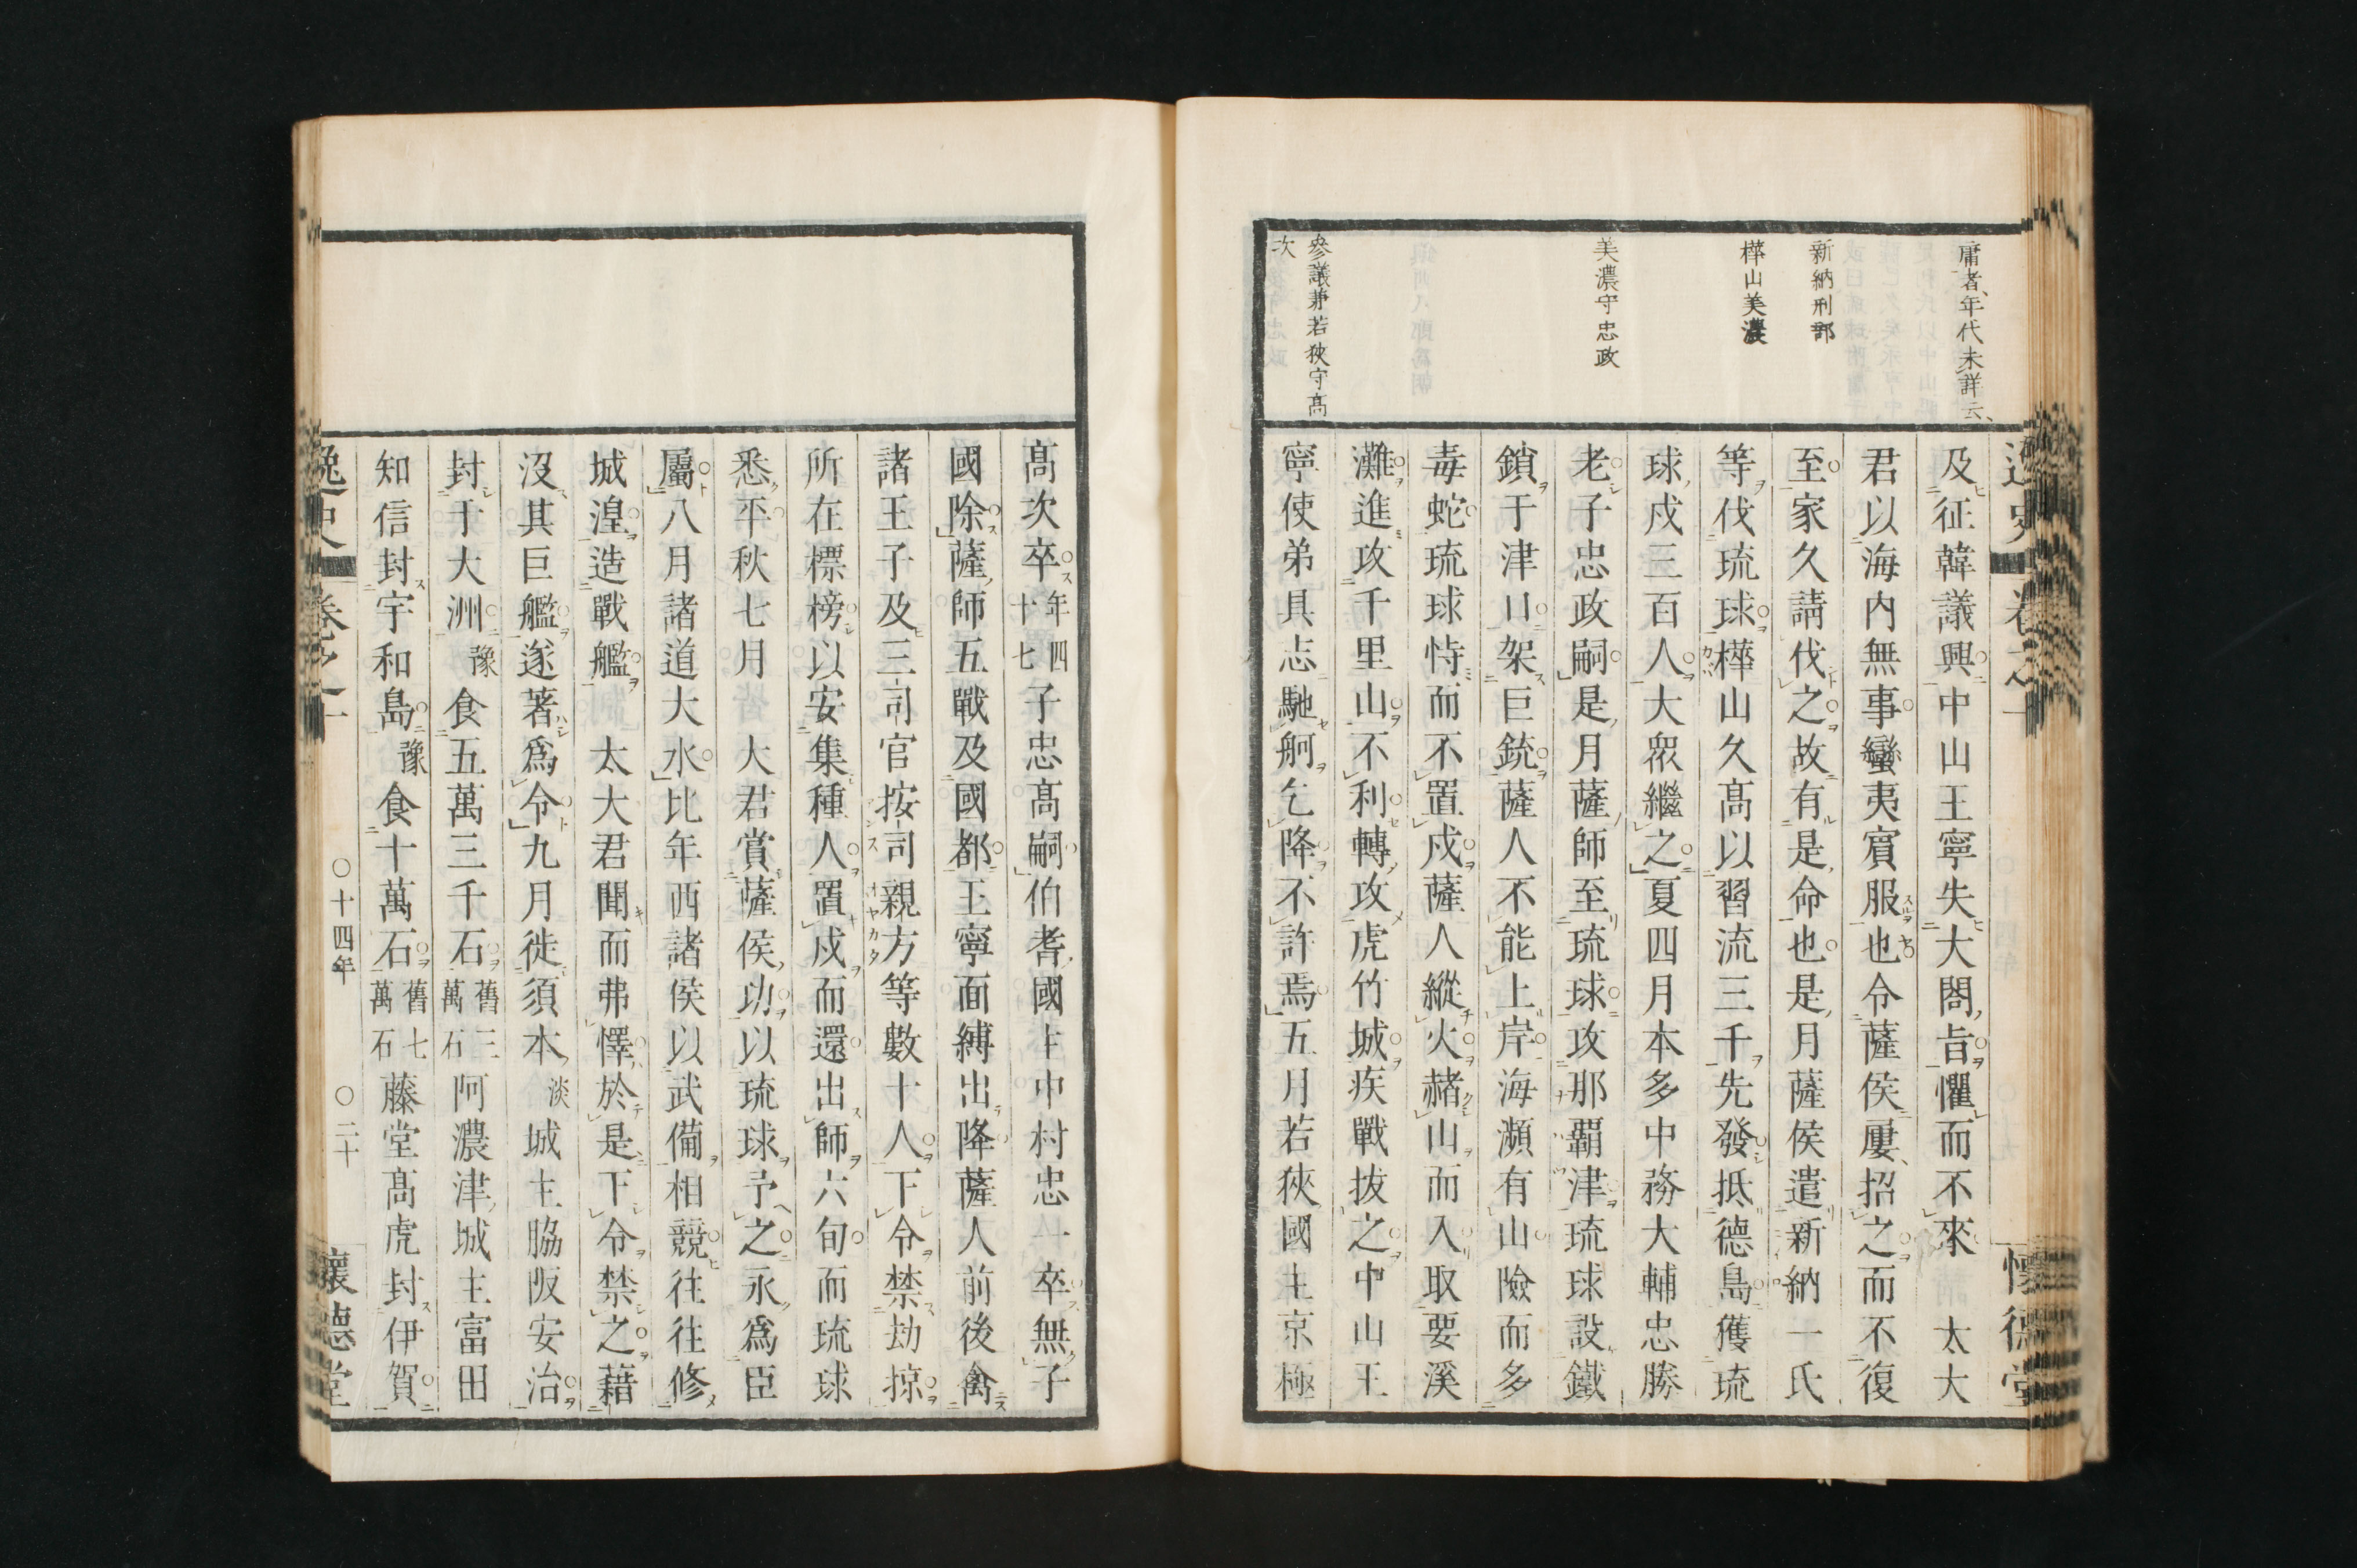 庸者、年代未詳云、
新納刑部
樺山美濃
美濃守忠政
參議兼若狹守高
次
及征韓議興中山王寧失大閤旨懼而不來　太大
君以海内無事蠻夷賓服也令薩侯屢招之而不復
至家久請伐之故有是命也是月薩侯遣新納一氏
等伐琉球樺山久高以習流三千先發抵德島獲琉
球戍三百人大衆繼之夏四月本多中務大輔忠勝
老子忠政嗣是月薩師至琉球攻那覇津琉球設鐵
鎖于津口架巨銃薩人不能上岸海瀕有山險而多
毒蛇琉球恃而不置戍薩人縱火赭山而入取要溪
灘進攻千里山不利轉攻虎竹城疾戰拔之中山王
寧使弟具志馳舸乞降不許焉五月若狹國主京極
高次卒年四十七子忠高嗣伯耆國主中村忠一卒無子
國除薩師五戰及國都王寧面縛出降薩人前後禽
諸王子及三司官按司親方等數十人下令禁劫掠
所在標榜以安集種人置戍而還出師六旬而琉球
悉平秋七月　大君賞薩侯功以琉球予之永爲臣
屬八月諸道大水比年西諸侯以武備相競往往修
城湟造戰艦　太大君聞而弗懌於是下令禁之藉
沒其巨艦遂著爲令九月徙須本淡城主脇阪安治
封于大洲豫食五萬三千石舊三萬石阿濃津城主富田
知信封宇和島豫食十萬石舊七萬石藤堂高虎封伊賀
逸史　卷之十一　〇十四年　〇二十　懷德堂